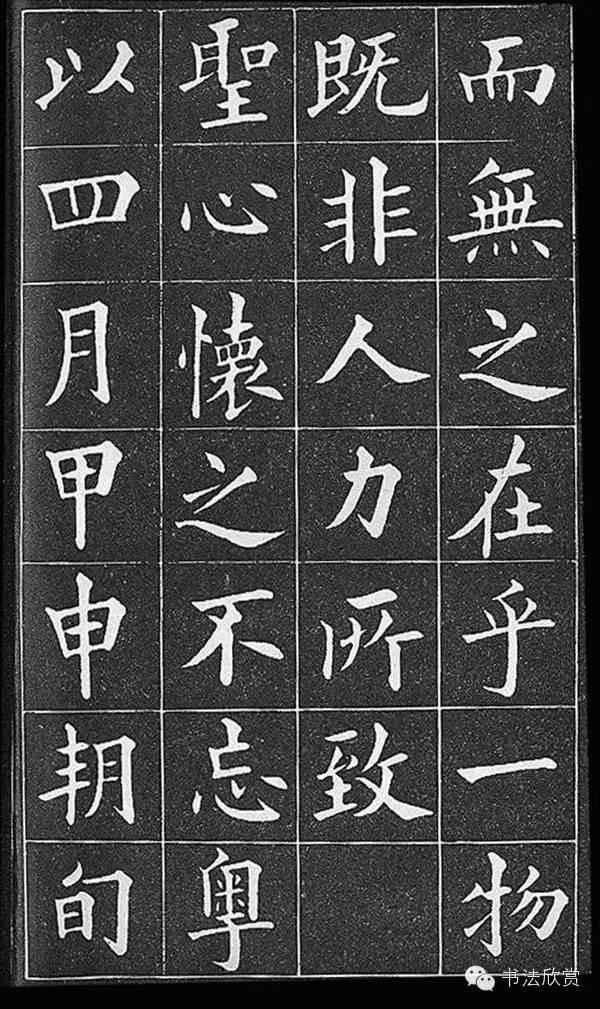 而無之在乎一物
既非人力所致
聖心懷之不忘粤
以四月甲申朔旬
书法欣赏